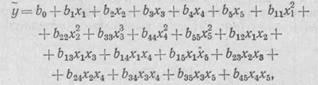 ỹ = b₀ + b₁x₁ + b₂x₂ + b₃x₃ + b₄x₄ + b₅x₅ + b₁₁x₁² +
+ b₂₂x₂² + b₃₃x₃³ + b₄₄x₄² + b₅₅x₅² + b₁₂x₁x₂ +
+ b₁₃x₁x₃ + b₁₄x₁x₄ + b₁₅x₁x₅ + b₂₃x₂x₃ +
+ b₂₄x₂x₄ + b₃₄x₃x₄ + b₃₅x₃x₅ + b₄₅x₄x₅,